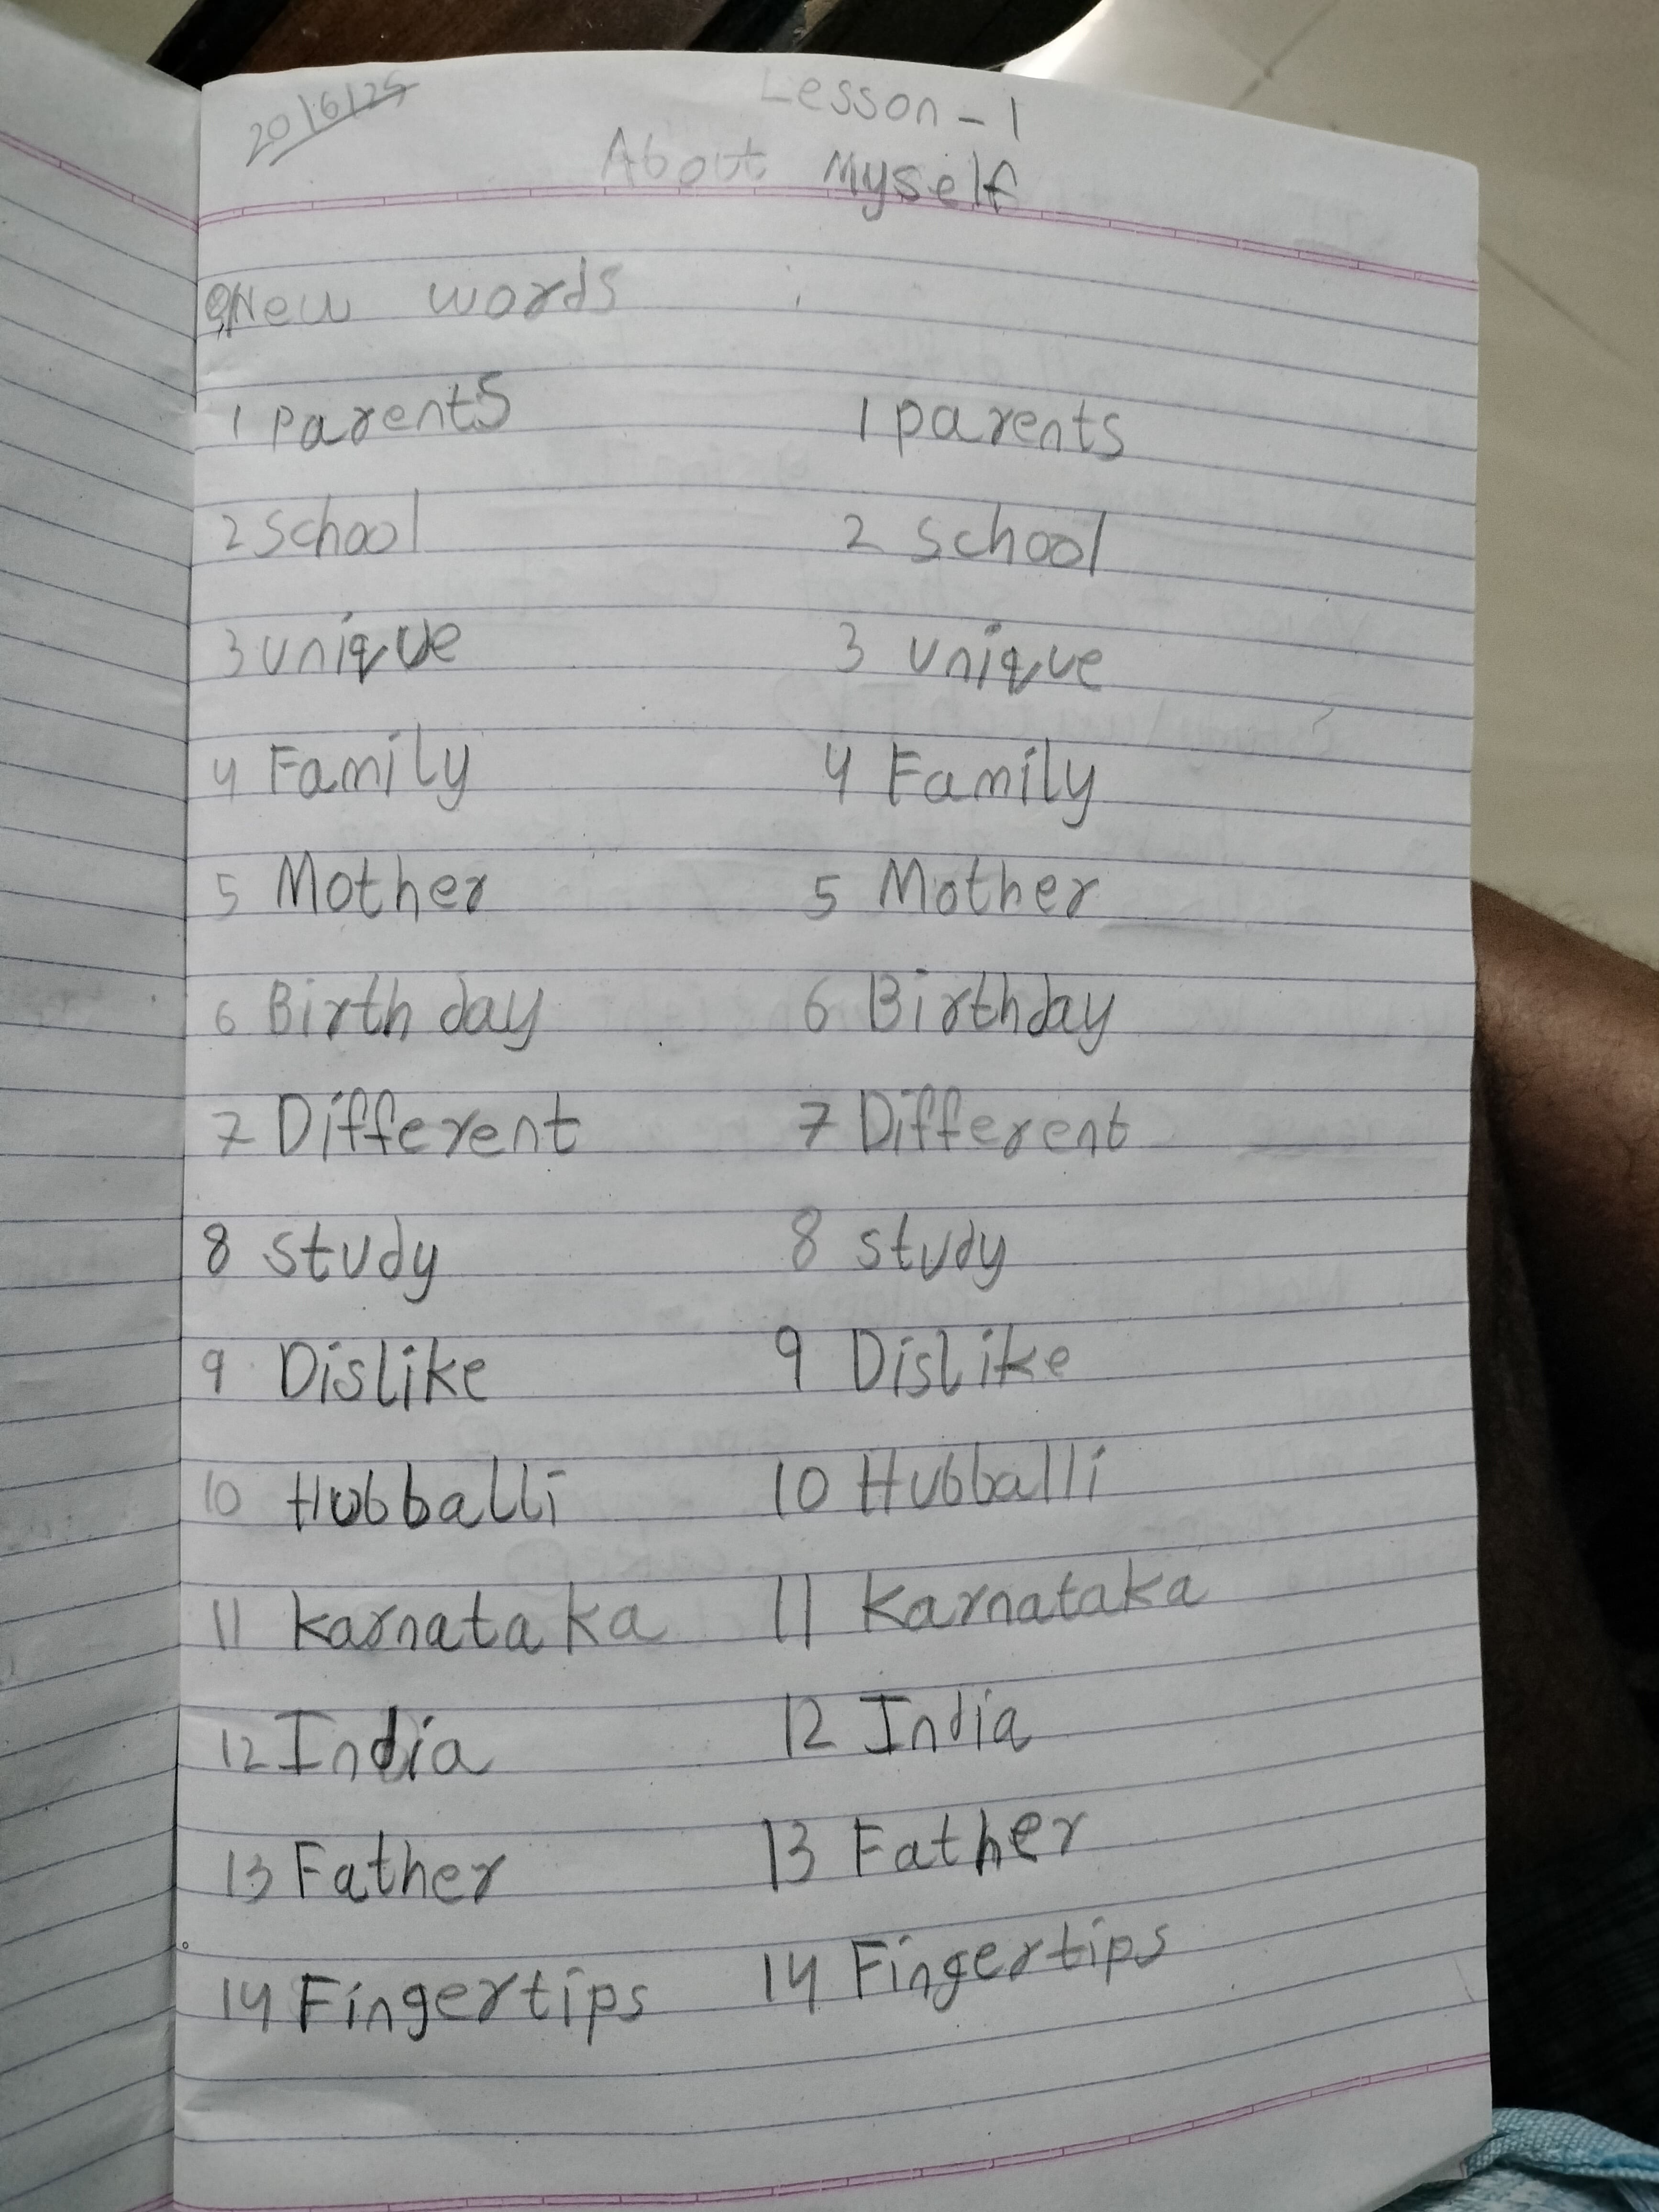 20/6/25
Lesson - 1
About Myself
New words
1 Parents 1 parents
2 School 2 School
3 unique 3 unique
4 Family 4 Family
5 Mother 5 Mother
6 Birth day 6 Birthday
7 Different 7 Different
8 study 8 study
9 Dislike 9 Dislike
10 Hubballi 10 Hubballi
11 karnataka 11 karnataka
12 India 12 India
13 Father 13 Father
14 Fingertips 14 Fingertips